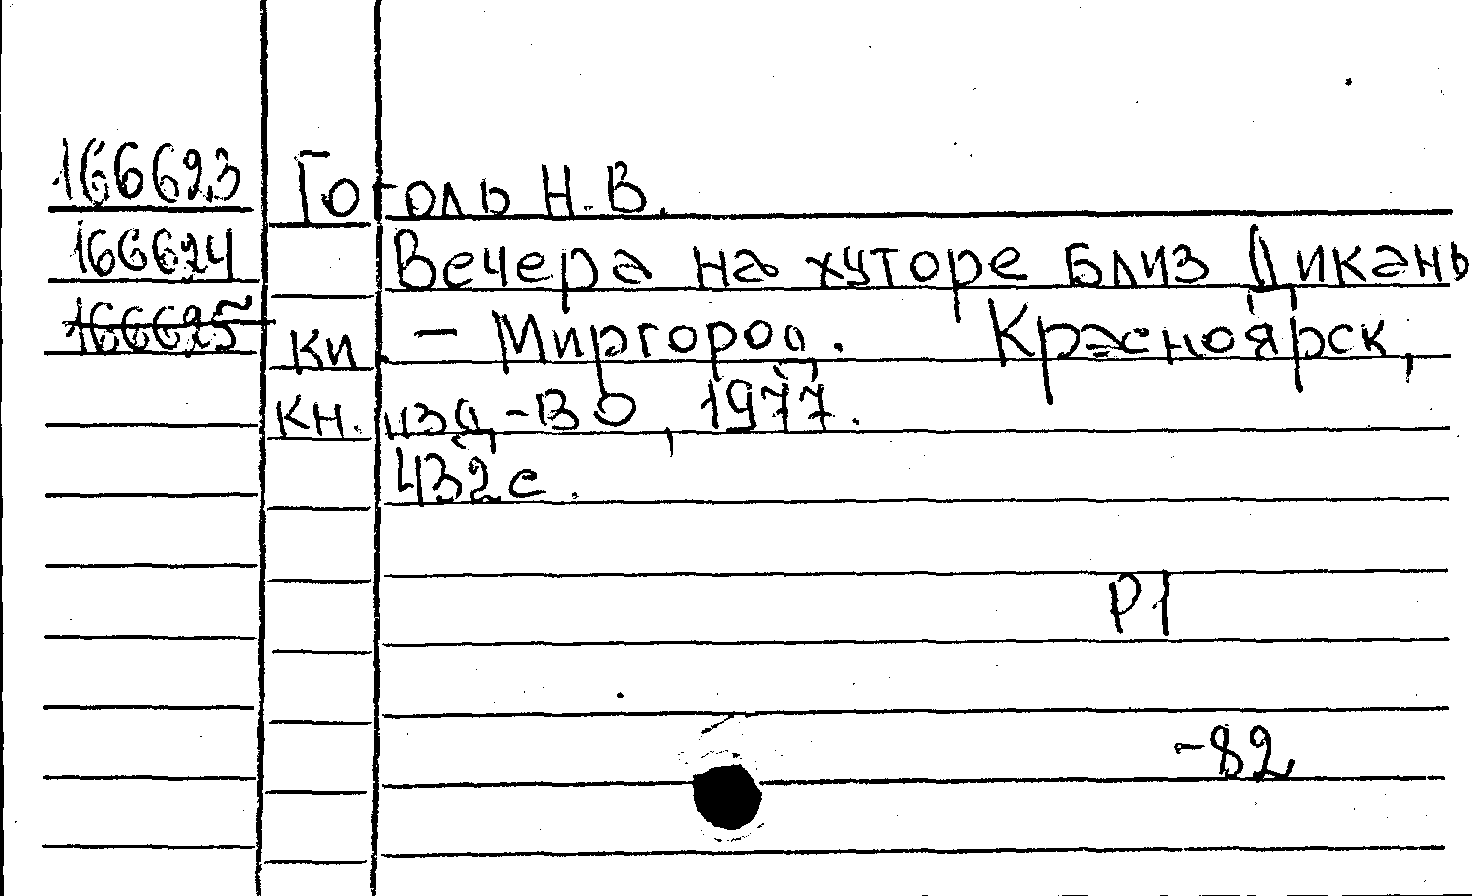 166623 Гоголь Н.В.
166624 Вечера на хуторе близ Дикань
166625 ки. - Миргород. Красноярск,
кн. изд-во, 1977.
432с.
Р1
-82